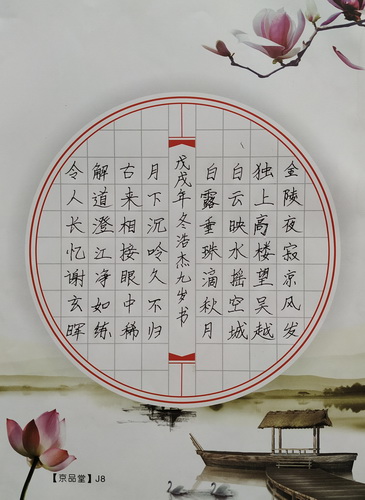 金陵夜寂凉风发
独上高楼望吴越
白云映水摇空城
白露垂珠滴秋月
戊戌年冬浩杰九岁书
月下沉吟久不归
古来相接眼中稀
解道澄江净如练
令人长忆谢玄晖
【京品堂】J8